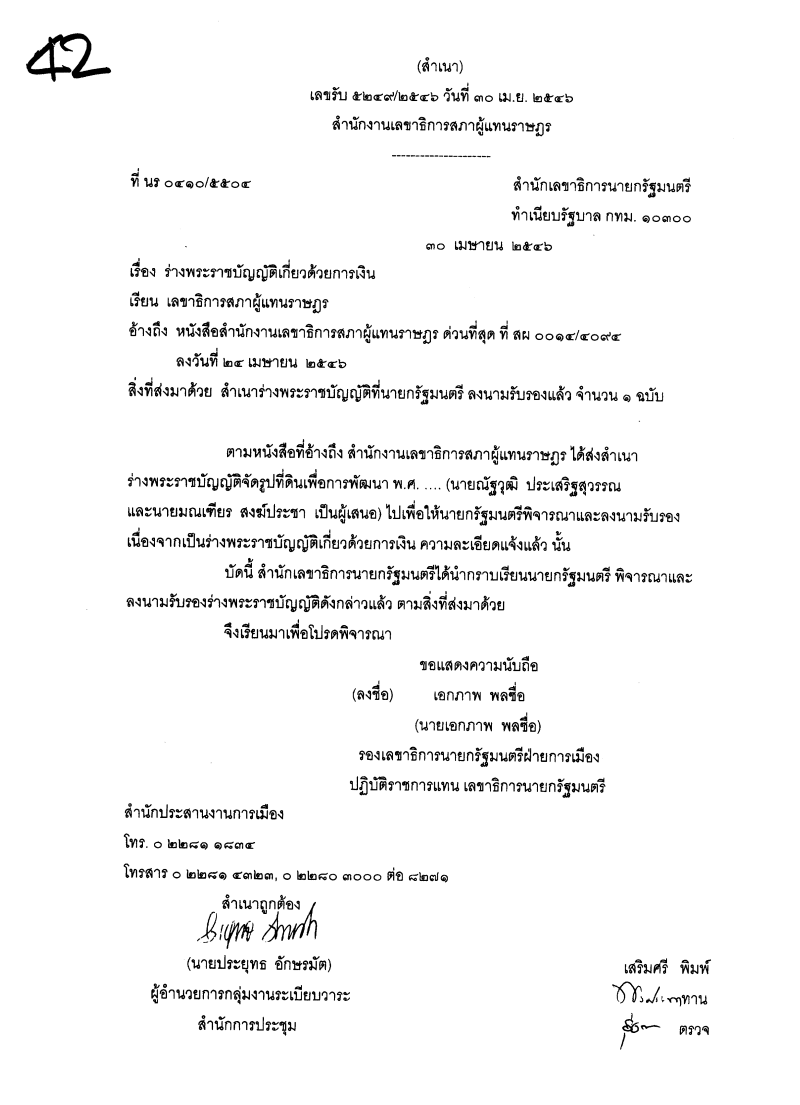 42
(สำเนา)
เลขรับ ๕๒๔๙/๒๕๔๖ วันที่ ๓๐ เม.ย. ๒๕๔๖
สำนักงานเลขาธิการสภาผู้แทนราษฎร
---------------------
ที่ นร ๐๔๑๐/๕๕๐๔
สำนักเลขาธิการนายกรัฐมนตรี
ทำเนียบรัฐบาล กทม. ๑๐๓๐๐
๓๐ เมษายน ๒๕๔๖
เรื่อง ร่างพระราชบัญญัติเกี่ยวด้วยการเงิน
เรียน เลขาธิการสภาผู้แทนราษฎร
อ้างถึง หนังสือสำนักงานเลขาธิการสภาผู้แทนราษฎร ด่วนที่สุด ที่ สผ ๐๐๑๔/๔๐๙๔
ลงวันที่ ๒๔ เมษายน ๒๕๔๖
สิ่งที่ส่งมาด้วย สำเนาร่างพระราชบัญญัติที่นายกรัฐมนตรี ลงนามรับรองแล้ว จำนวน ๑ ฉบับ
ตามหนังสือที่อ้างถึง สำนักงานเลขาธิการสภาผู้แทนราษฎร ได้ส่งสำเนา
ร่างพระราชบัญญัติจัดรูปที่ดินเพื่อการพัฒนา พ.ศ. .... (นายณัฐวุฒิ ประเสริฐสุวรรณ
และนายมณเฑียร สงฆ์ประชา เป็นผู้เสนอ) ไปเพื่อให้นายกรัฐมนตรีพิจารณาและลงนามรับรอง
เนื่องจากเป็นร่างพระราชบัญญัติเกี่ยวด้วยการเงิน ความละเอียดแจ้งแล้ว นั้น
บัดนี้ สำนักเลขาธิการนายกรัฐมนตรีได้นำกราบเรียนนายกรัฐมนตรี พิจารณาและ
ลงนามรับรองร่างพระราชบัญญัติดังกล่าวแล้ว ตามสิ่งที่ส่งมาด้วย
จึงเรียนมาเพื่อโปรดพิจารณา
ขอแสดงความนับถือ
(ลงชื่อ) เอกภาพ พลซื่อ
(นายเอกภาพ พลซื่อ)
รองเลขาธิการนายกรัฐมนตรีฝ่ายการเมือง
ปฏิบัติราชการแทน เลขาธิการนายกรัฐมนตรี
สำนักประสานงานการเมือง
โทร. ๐ ๒๒๘๑ ๑๘๓๔
โทรสาร ๐ ๒๒๘๑ ๔๓๒๓, ๐ ๒๒๘๐ ๓๐๐๐ ต่อ ๘๒๗๑
สำเนาถูกต้อง
(นายประยุทธ อักษรมัต)
ผู้อำนวยการกลุ่มงานระเบียบวาระ
สำนักการประชุม
เสริมศรี พิมพ์
ทาน
ตรวจ